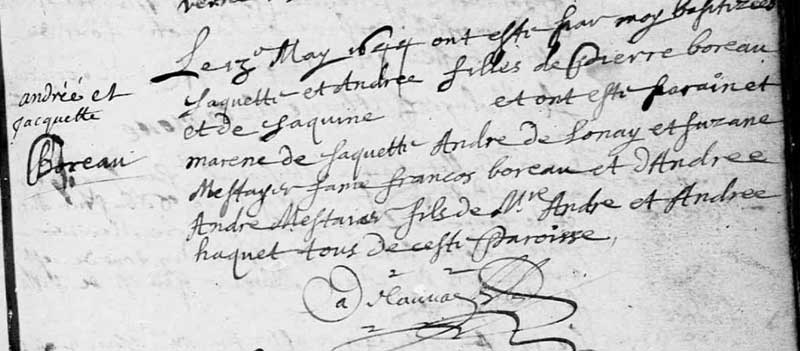 Le 13e May 1644 ont esté par moy baptizées
Jaquette et Andree filles de Pierre boreau
et de Jaquine et ont esté parain et
marene de Jaquette Andre de Lonay et Suzane
Mestayer fame francos boreau et d'Andree
Andre Mestaier fils de Mre Andre et Andree
haquet tous de ceste Paroisse
andréé et
Jacquette
Boreau